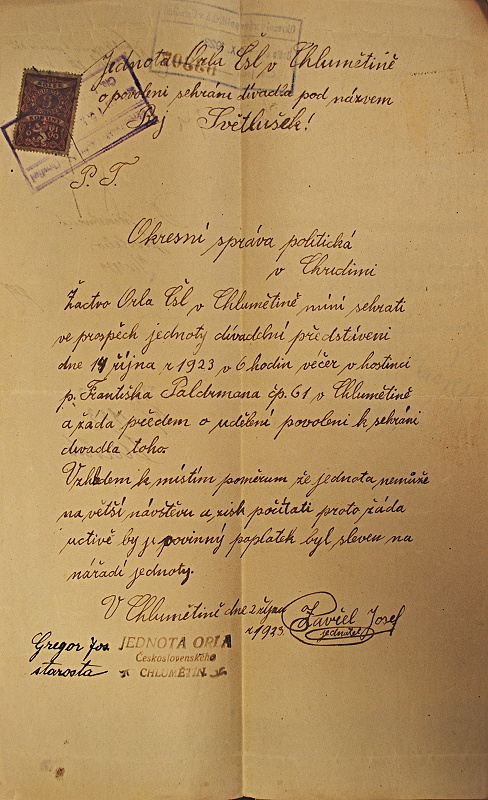 Jednota Orla Čsl v Chlumětíně
o povoleni sehráni divadla pod názvem
Rej Světlušek!
P. T.
Okresní správa politická
v Chrudimi
Žactvo Orla Čsl v Chlumětině míní sehrati
ve prospěch jednoty divadelní představeni
dne 14 října r 1923 v 6 hodin večer v hostinci
p. Františka Paldrmana čp. 61 v Chlumětině
a žáda předem o udělení povoleni k sehráni
divadla toho.
Vzhledem k místím poměrum že jednota nemůže
na větší návstěvu a zisk počítati proto žáda
uctivě by ji povinný poplatek byl sleven na
nářadí jednoty.
V Chlumětině dne 2 října
r 1923.
Zavřel Josef
jednatel
Gregor Jos.
starosta
JEDNOTA ORLA
Československého
CHLUMĚTÍN